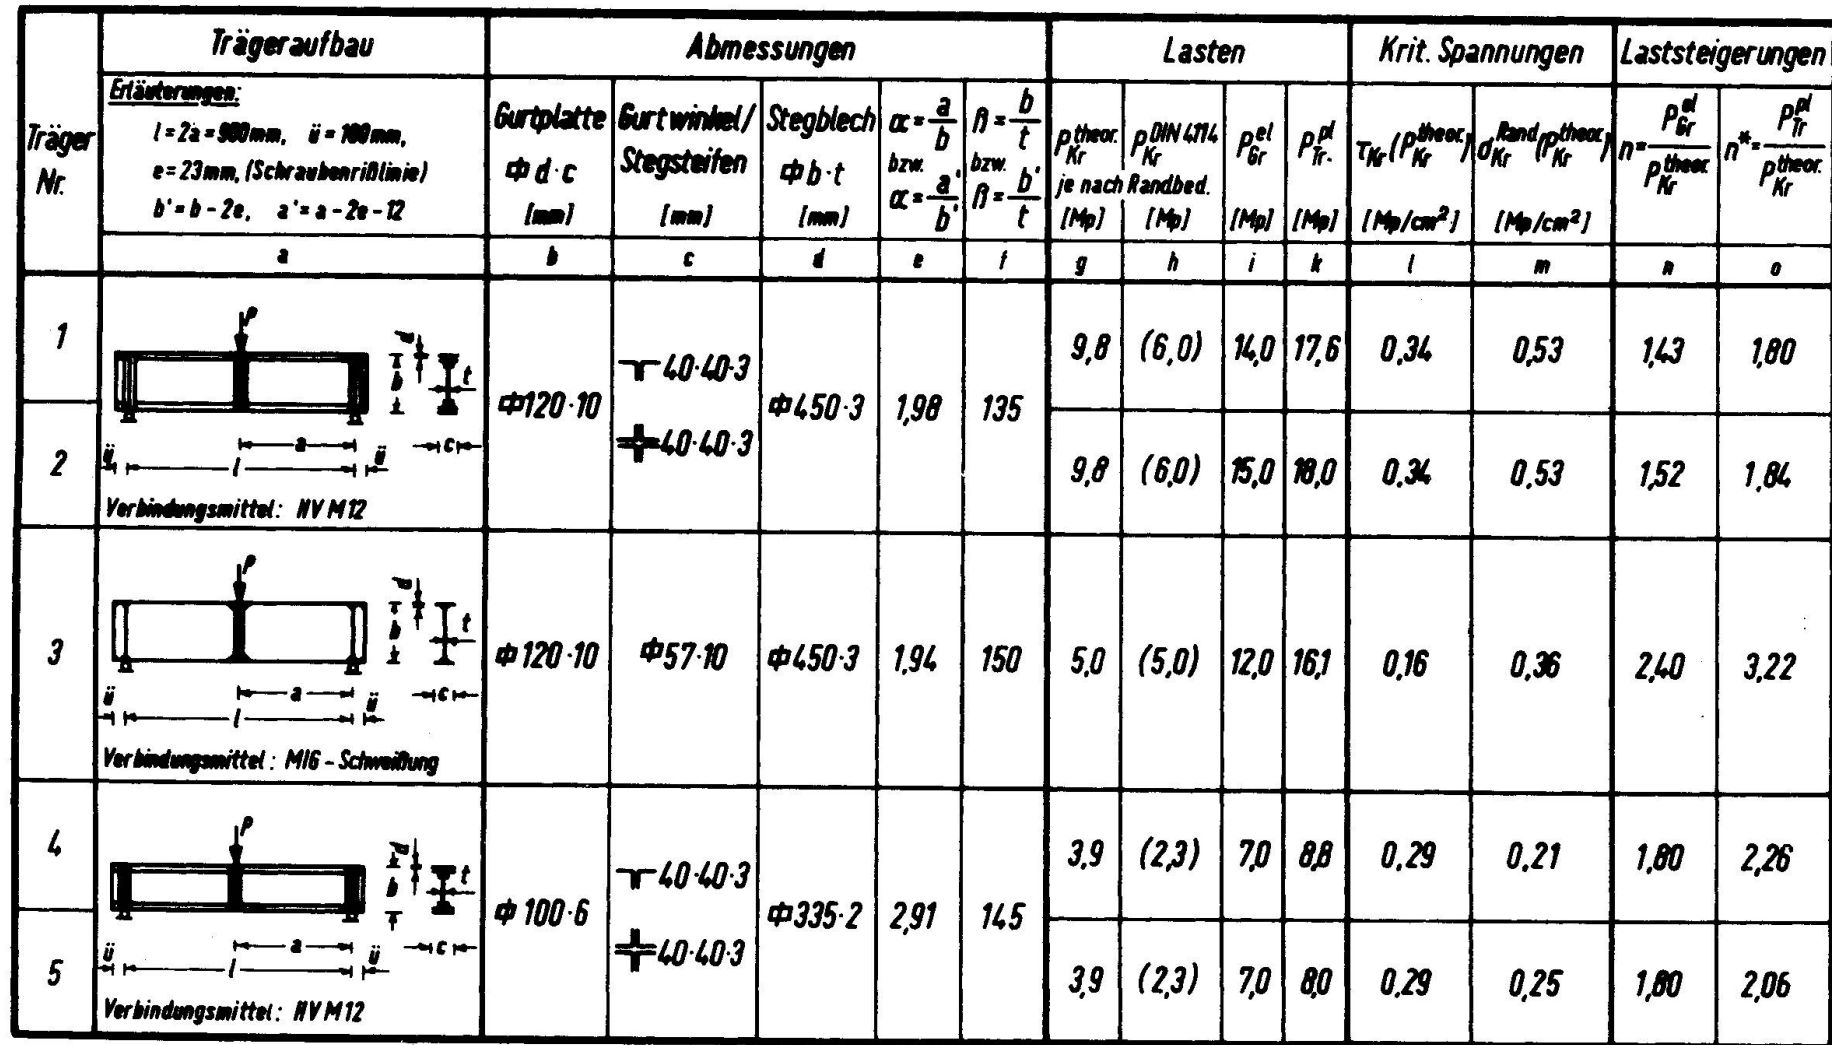 Träger Nr.
Trägeraufbau
Abmessungen
Lasten
Krit. Spannungen
Laststeigerungen
Erläuterungen:
l = 2a = 900mm, ü = 100mm,
e = 23mm, (Schraubenrißlinie)
b' = b - 2e, a' = a - 2e - 12
Gurtplatte
⌽ d · c
[mm]
Gurtwinkel/
Stegsteifen
[mm]
Stegblech
⌽ b · t
[mm]
α = a/b
bzw.
α = a'/b'
β = b/t
bzw.
β = b'/t
P Kr theor.
P Kr DIN 4114
je nach Randbed.
[Mp] [Mp]
P Gr el
[Mp]
P Tr. pl
[Mp]
τKr (P Kr theor.)
[Mp/cm²]
σ Kr Rand (P Kr theor.)
[Mp/cm²]
n = P Gr el / P Kr theor.
n* = P Tr pl / P Kr theor.
a b c d e f g h i k l m n o
1
P
d
b
t
a
c
ü
l
ü
Verbindungsmittel: HV M12
⌽120·10
40·40·3
40·40·3
⌽450·3
1,98
135
9,8 (6,0) 14,0 17,6 0,34 0,53 1,43 1,80
2
9,8 (6,0) 15,0 18,0 0,34 0,53 1,52 1,84
3
P
d
b
t
a
c
ü
l
ü
Verbindungsmittel: MIG - Schweißung
⌽120·10 ⌽57·10 ⌽450·3 1,94 150 5,0 (5,0) 12,0 16,1 0,16 0,36 2,40 3,22
4
P
d
b
t
a
c
ü
l
ü
Verbindungsmittel: HV M12
⌽100·6
40·40·3
40·40·3
⌽335·2
2,91
145
3,9 (2,3) 7,0 8,8 0,29 0,21 1,80 2,26
5
3,9 (2,3) 7,0 8,0 0,29 0,25 1,80 2,06